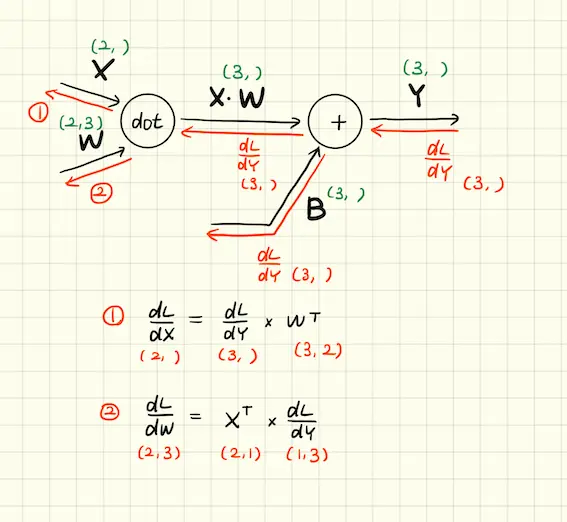 (2, )
X
(3, )
X · W
(3, )
Y
①
dot
+
(2,3)
W
②
dL/dY
(3, )
dL/dY (3, )
B (3, )
dL/dY (3, )
① dL/dX = dL/dY × Wᵀ
(2, ) (3, ) (3, 2)
② dL/dW = Xᵀ × dL/dY
(2,3) (2,1) (1,3)